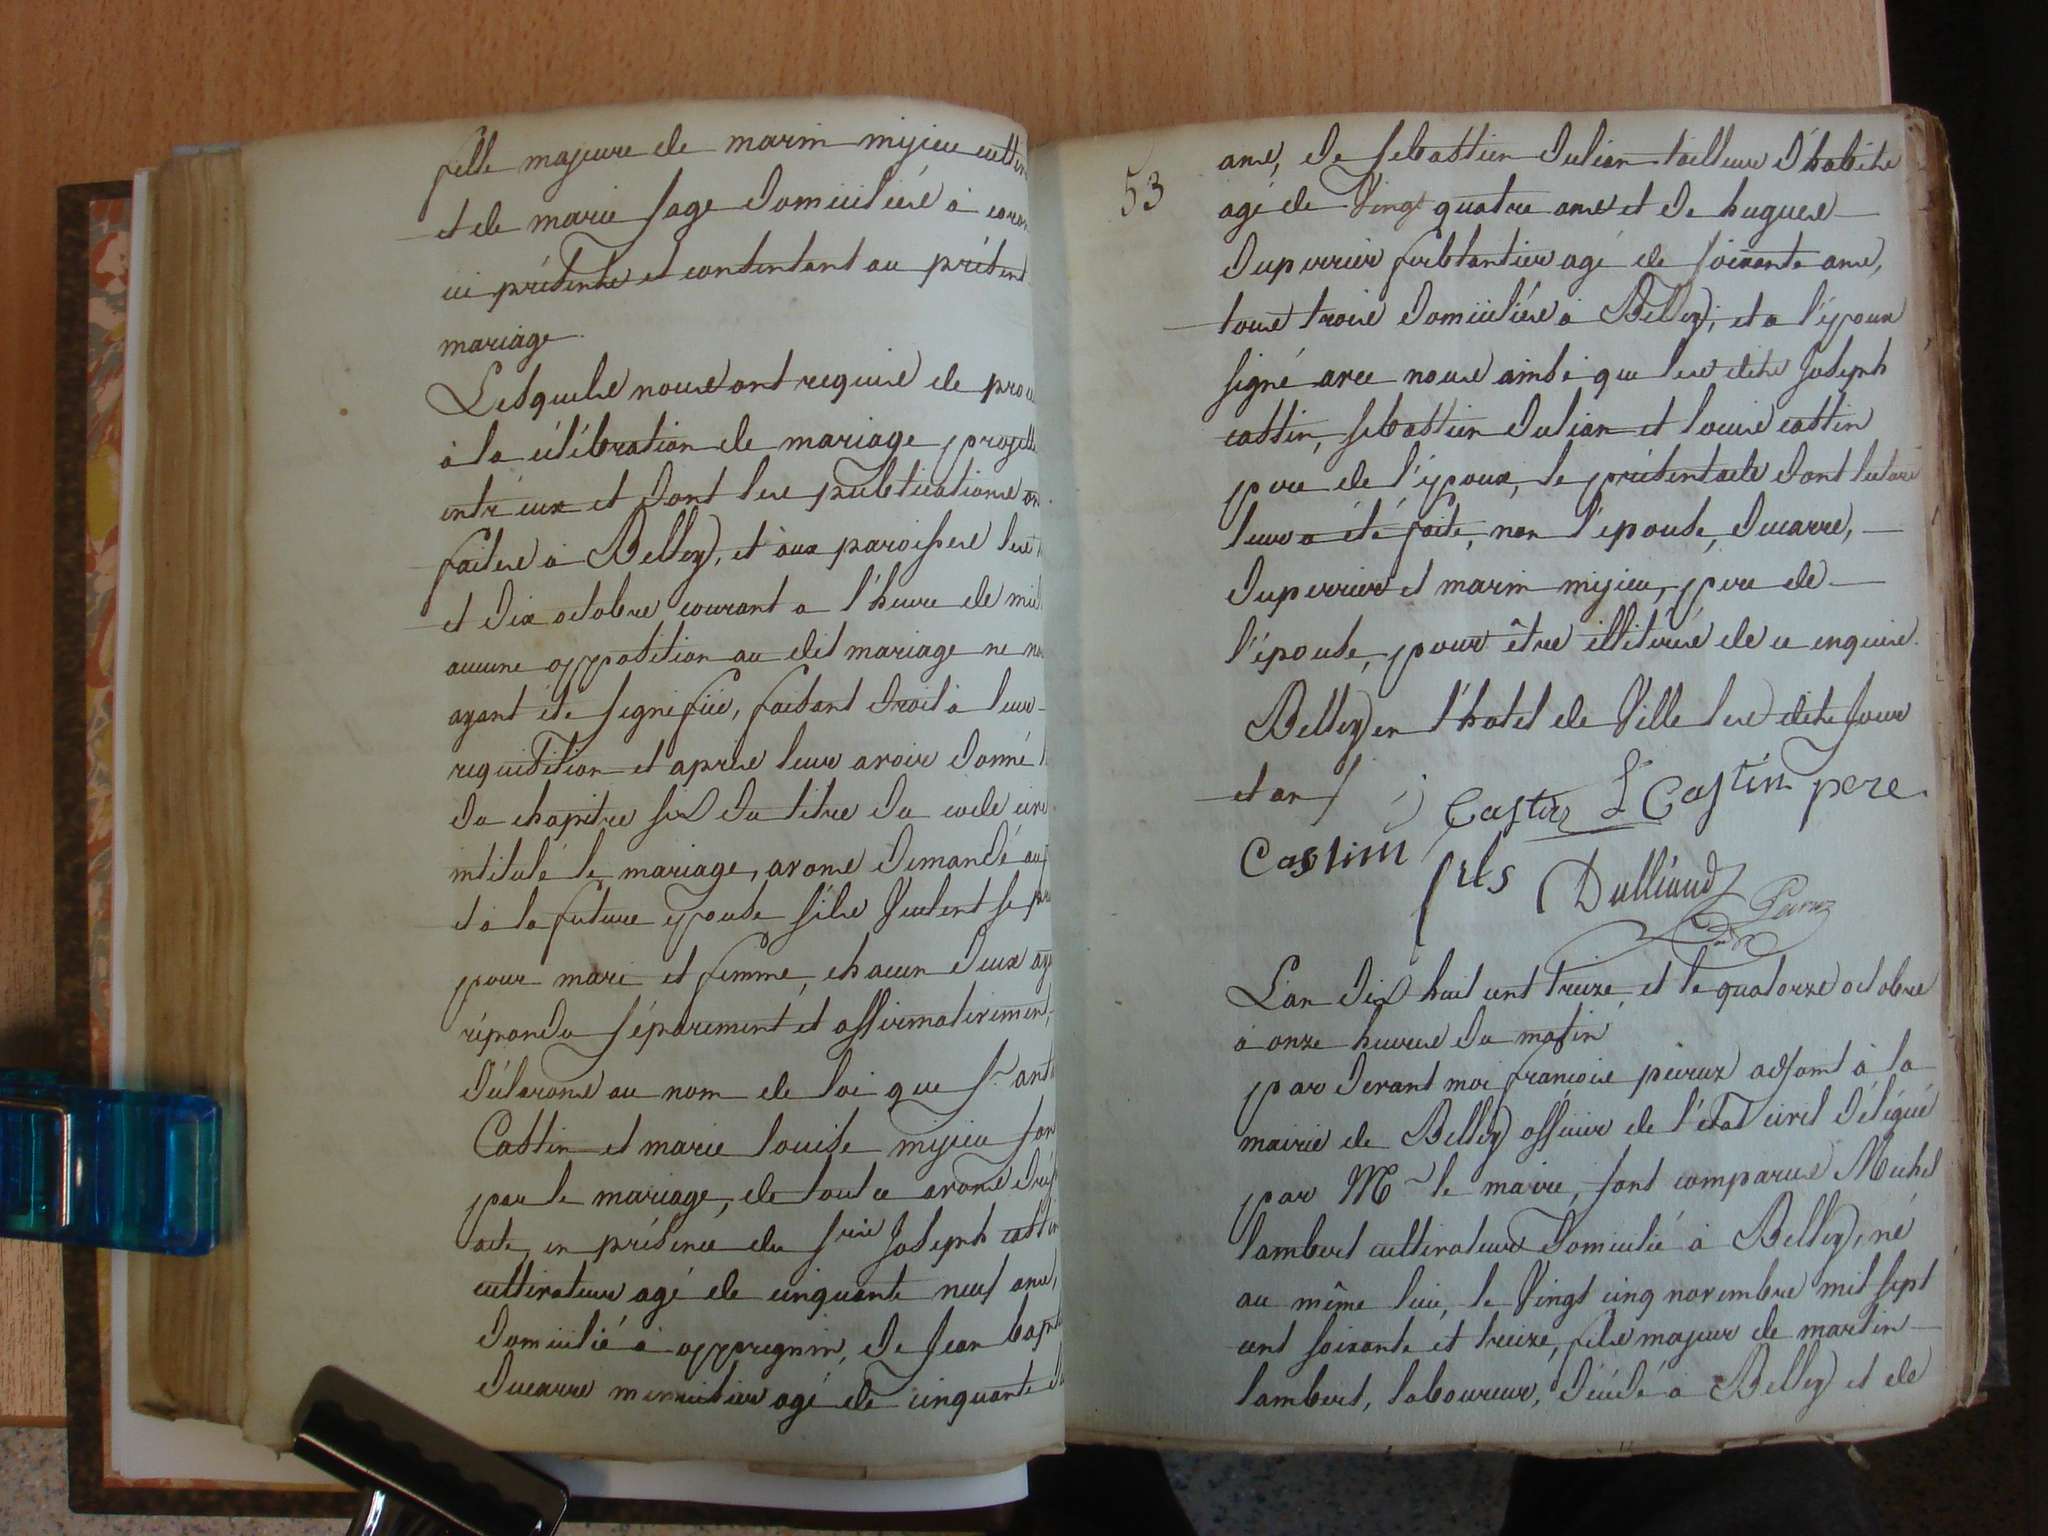 fille majeure de marin mijieu
et de marie sage domiciliés à
ici présents et consentant au présent
mariage.
Lesquels nous ont requis de
à la célébration de mariage projetté
entr'eux et dont les publications
faites à Belley, et aux paroisses les
et dix octobre courant a l'heure de
aucune opposition au dit mariage ne
ayant été signifiée, faisant droit à leur
requisition et après leur avoir donné
du chapitre six du titre du code
intitulé le mariage, avons demandé
et a la future epouse s'ils veulent se
pour mari et femme, chacun d'eux
répondu séparement et affirmativement,
déclarons au nom de loi que Sr
Castin et marie louise mijieu
par le mariage, de tout ce avons
acte, en présence des Srs Joseph
cultivateur agé de cinquante neuf ans,
domicilié à appregnin, de jean
ducarre menuisier agé de cinquante
53
ans, de sebastien dulian tailleur d'habits
agé de vingt quatre ans et de hugues
duperrier agé de soixante ans,
tous trois domiciliés à Belley, et a l'époux
signé avec nous ainsi que les dits Joseph
castin, sebastien dulian et louis castin
pere de l'époux, le présent acte dont lecture
leur a été faite, non l'épouse, ducarre,
duperrier et marin mijieu, pere de
l'épouse, pour être illiterés de ce enquis.
Belley en l'hotel de Ville les dits jour
et an
Castin L Castin pere
Castin fils Dulliand
Lan dix huit cent treize, et le quatorze octobre
à onze heures du matin
par devant moi françois peiruz adjoint à la
mairie de Belley officier de l'état civil délégué
par Mr le maire, sont comparus Michel
lambert cultivateur domicilié à Belley, né
au même lieu, le Vingt cinq novembre mil sept
cent soixante et treize, fils majeur de martin
lambert, laboureur, décédé à Belley et de